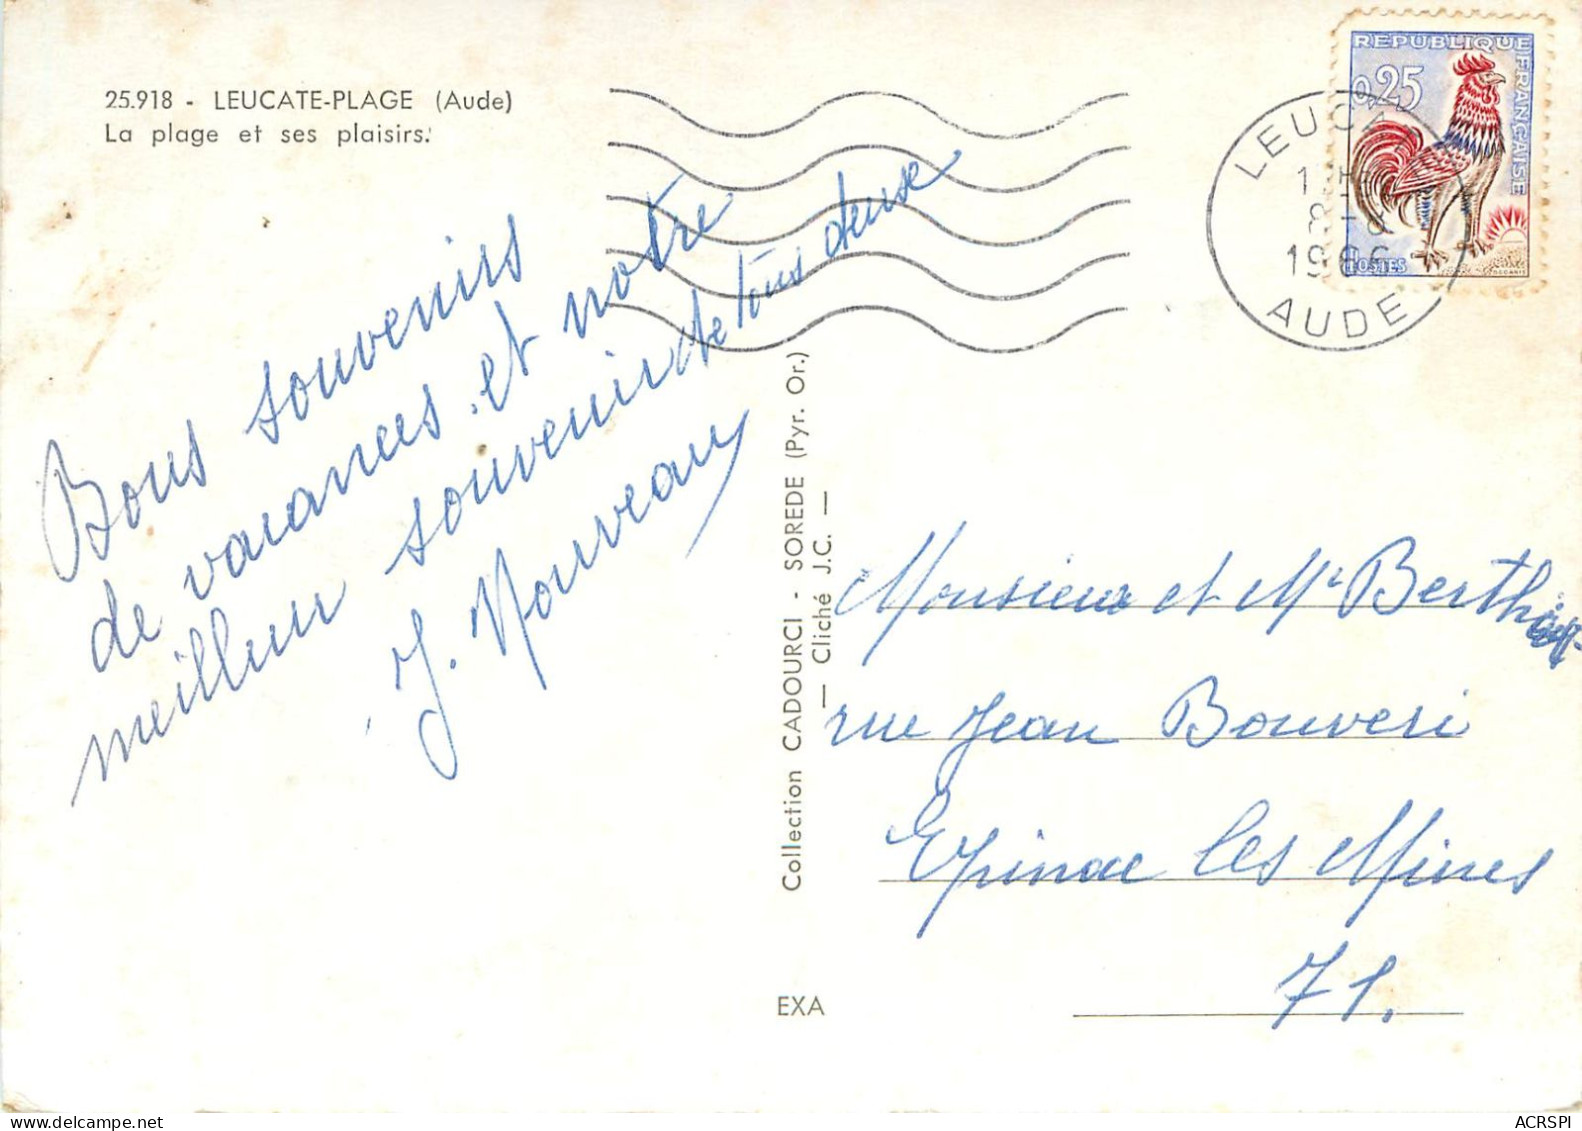 25.918 - LEUCATE-PLAGE (Aude)
La plage et ses plaisirs.
Bons souvenirs
de vacances et notre
meilleur souvenir de tous deux
J. Nouveau
Collection CADOURCI - SOREDE (Pyr. Or.)
— Cliché J.C. —
EXA
REPUBLIQUE FRANÇAISE
0,25
POSTES
LEUCA
1966
AUDE
Monsieur et Me
rue Jean Bouveri
Epinac les Mines
71.
ACRSPI